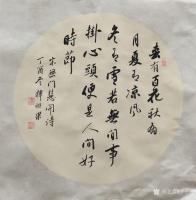 春有百花秋有
月夏有凉风
冬有雪若无闲事
掛心頭便是人间好
時節
宋無门慧開诗
丁酉冬